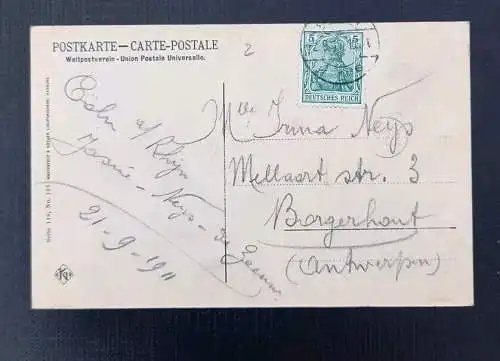 POSTKARTE — CARTE-POSTALE
Weltpostverein - Union Postale Universelle.
2
5 5
DEUTSCHES REICH
Cöln a/ Rhijn
Neys - De
21-9-1911
Mlle Irma Neys
Mellaert str. 3
Borgerhout
(Antwerpen)